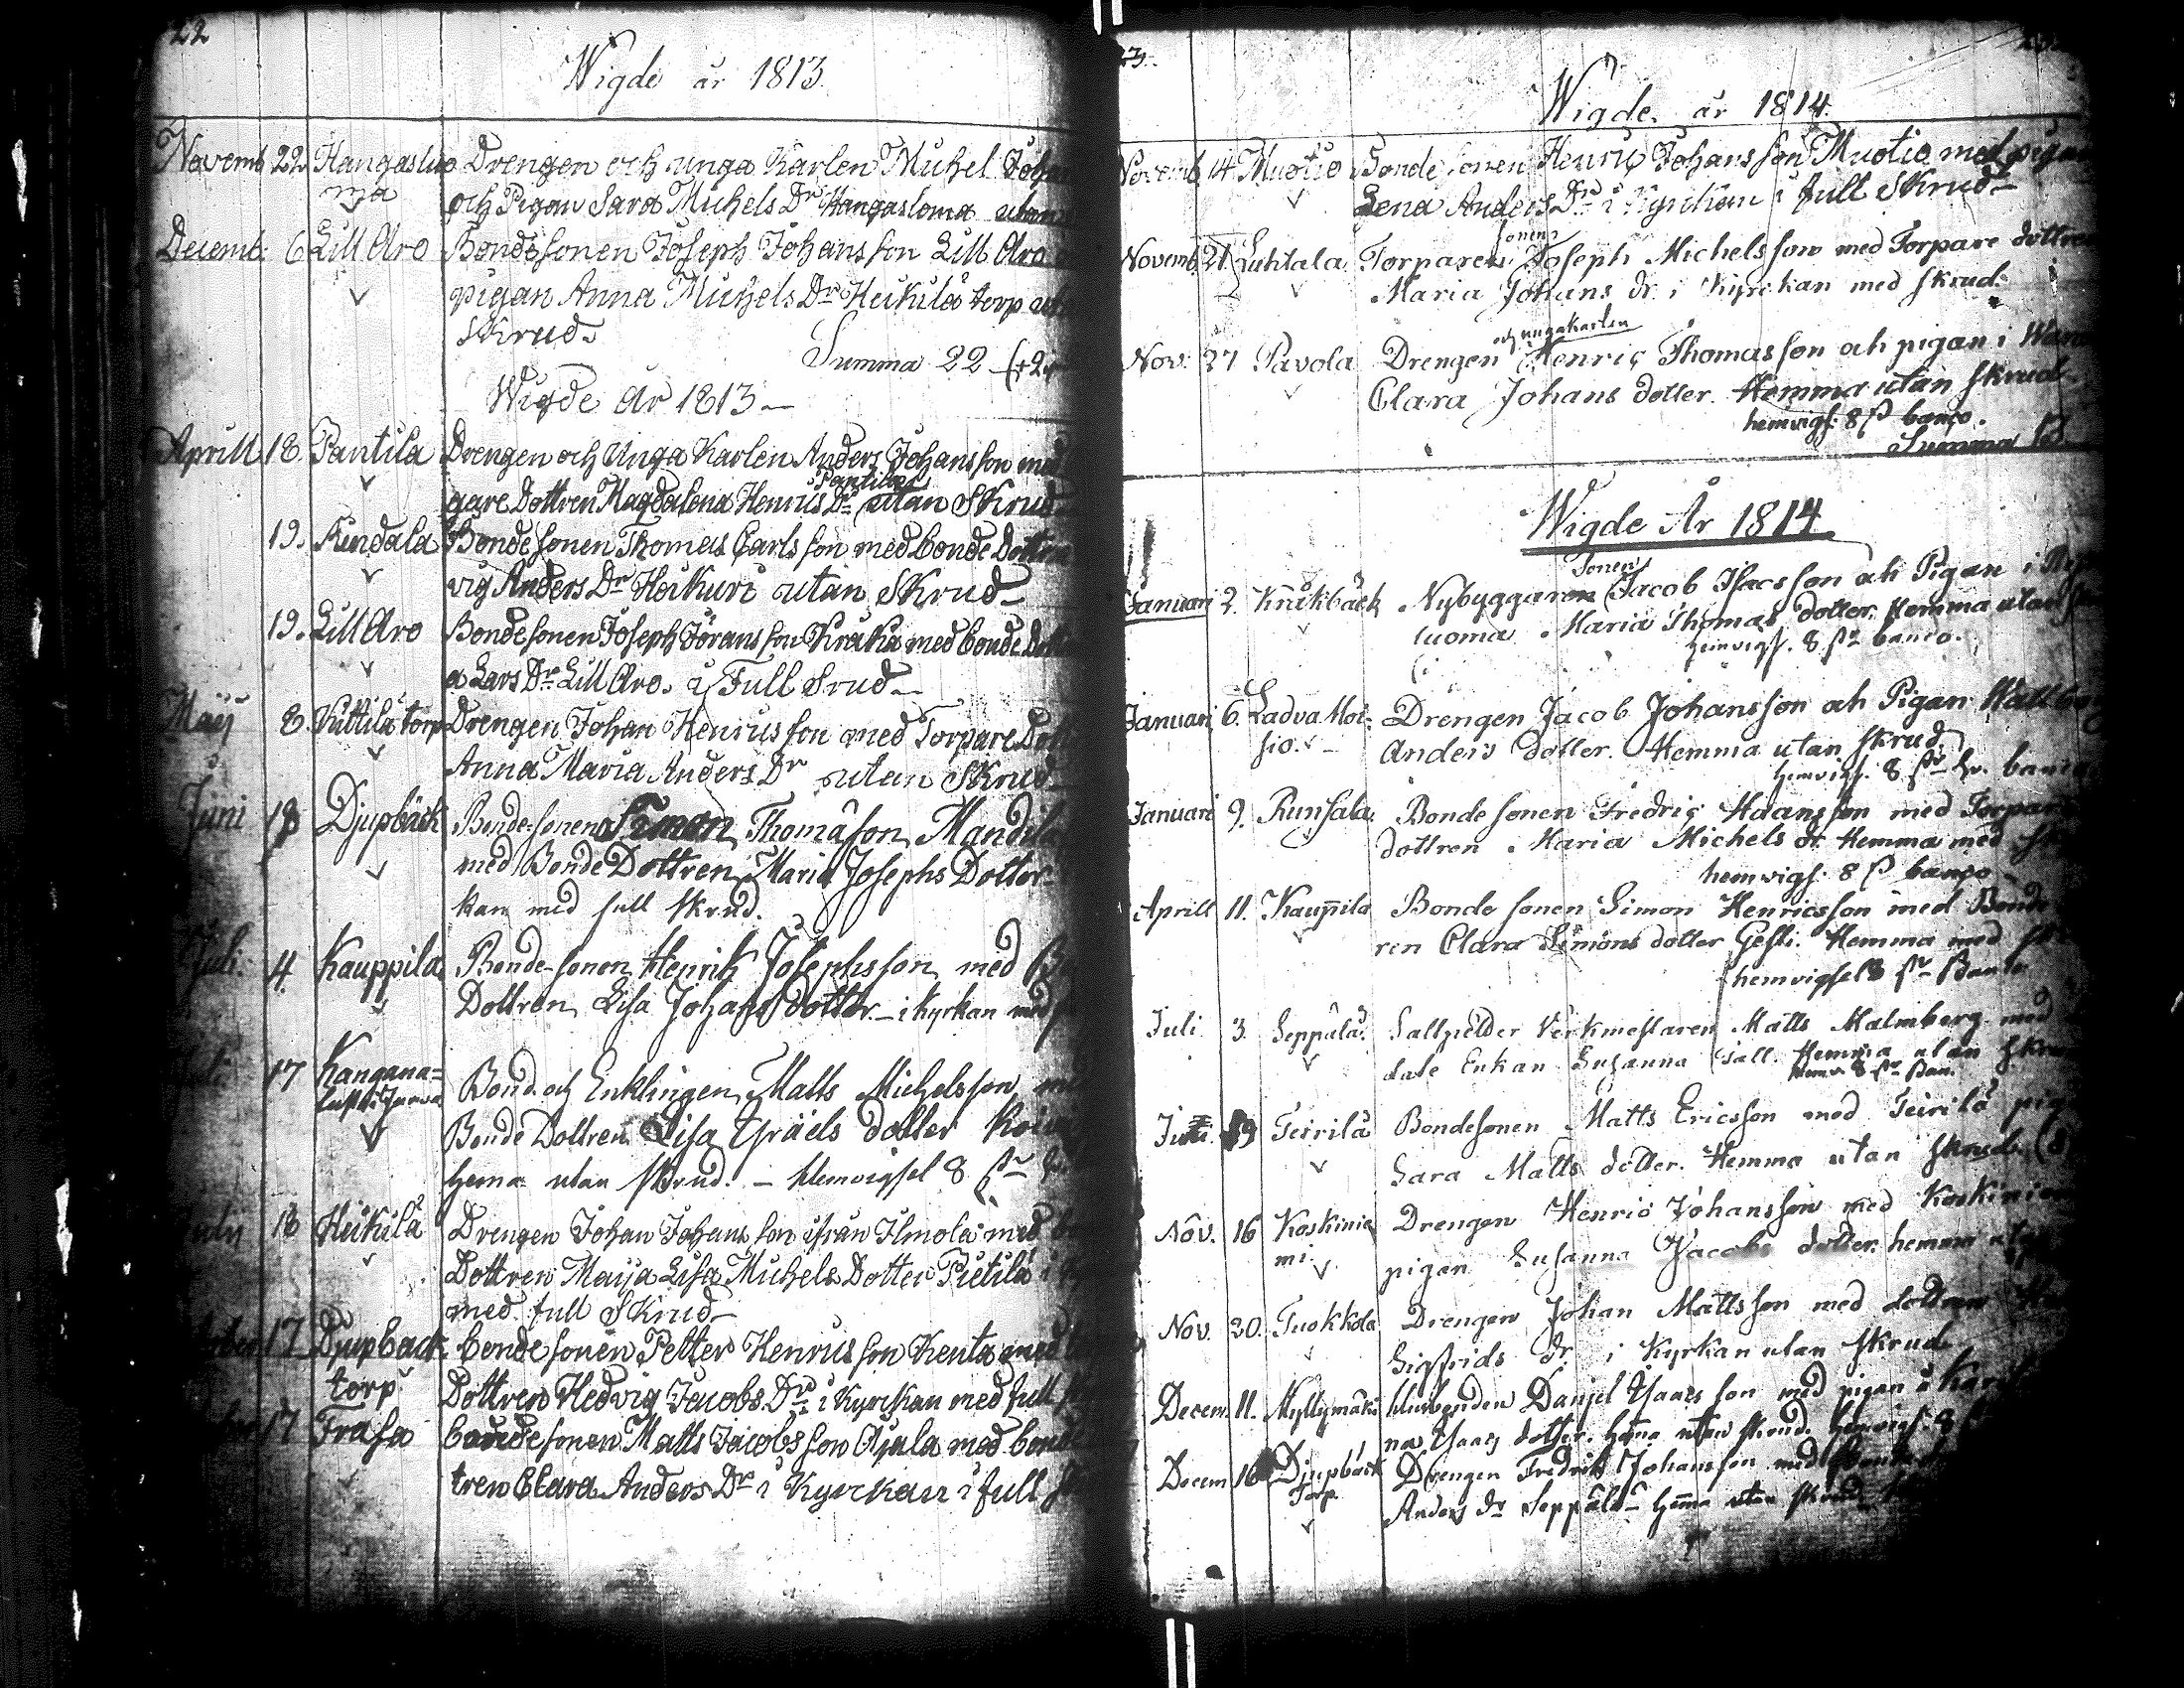 22
Wigde år 1813.
Novemb 22 Hangasluo Drengen och unga Karlen Michel Johan
ma och Pigan Sara Michels Dr Hangasloma utan
Decemb: 6 Lill Aro Bondesonen Joseph Johansson Lill Aro
pigan Anna Michels Dr Heikilä torp
Skrud.
Summa 22
Wigde År 1813
Aprill 18 Pantila Drengen och Unga Karlen Anders Johansson med
Pantila
gare Dottren Magdalena Henrics Dr utan Skrud
19. Bondesonen Thomas Carlsson med bonde Dottre
vig Anders Dr Heikuri utan Skrud
19. Lill Aro Bondesonen Joseph Göransson Kråka med bonde Dott
a Lars Dr Lill Aro. i Full Srud
Maij 8 torp Drengen Johan Henricsson med Torpare Dott
Anna Maria Anders Dr utan Skrud
Juni 18 Djupback Bonde-sonen Simon Thomasson Mandila
med Bonde Dottren Maria Josephs Dotter
kan med full skrud.
Juli. 4. Kauppila Bonde-sonen Henrik Josephsson med
Dottren Lisa Johans dotter i kyrkan med
17 Kangana=
Bond. och Enklingen Matts Michelsson med
Bonde Dottren Lisa Israels dotter
hema utan skrud. – Hemvigsel 8
July 18 Heikilä Drengen Johan Johansson ifrån Ilmola med
Dottren Maija Lisa Michels Dotter Pietilä i
med full Skrud
17 Djupback bonde sonen Petter Henricsson Kenta med
torp Dottren Hedvig Jacobs Dr i Kyrckan med full
17 Frasa bondesonen Matts Jacobsson Ojala med bond
tren Clara Anders Dr i Kyrckan i full
23.
Wigde år 1814.
Novemb. 14 Muotio Bonde sonen Henric Johansson Muotio med pigan
Lena Anders Dr i Kyrckan i full Skrud
sonen
Novemb. 21. Luhtala Torparen Joseph Michelsson med Torpare dottren
Maria Johans dr. i Kyrckan med skrud.
och ungakarlen
Nov: 27 Pavola Drengen Henric Thomasson och pigan i
Clara Johans dotter. Hemma utan skrud.
hemvigs. 8 ß banco.
Summa
Wigde År 1814
Sonen
Januari 2. Kråkbäck Nybyggaren Jacob Isacsson och Pigan i
luoma Maria Thomas dotter. Hemma utan
Hemvigs. 8 ßr banco.
Januari 6. Ladva Moi- Drengen Jacob Johansson och Pigan Wallborg
sio. Anders dotter. Hemma utan skrud.
Hemvigs. 8 ßr banco
Januari 9. Runsala. Bonde sonen Fredric Adamsson med Torpare
dottren Maria Michels dr. Hemma med
hemvigs. 8 ß banco
Aprill 11. Kauppila Bonde sonen Simon Henricsson med Bonde
ren Clara Simons dotter Hemma med
hemvigsel 8 ßr Banco
Juli 3 Seppälä. Saltpetter Verkmestaren Matts Malmberg med
Enkan Susanna Hemma utan skrud
hemv. 8 ßr Ban.
Teirilä Bondesonen Matts Ericsson med Teirilä pig
Sara Matts dotter. Hemma utan skrud.
Nov. 16 Koskinie Drengen Henric Johansson med Koskinie
mi. pigan Susanna Jacobs dotter. hemma utan
Nov. 20. Tuokkola Drengen Johan Mattsson med dottren
Sigfrids dr. i Kyrkan utan skrud
Decem. 11. Myllymäki Danjel Isaacsson med pigan
na Isaacs dotter. hema utan skrud. hemvigs. 8
Decem 16 Djupback Drengen Fredrik Johansson med Bonde
Torp. Anders dr Seppälä hema utan skrud